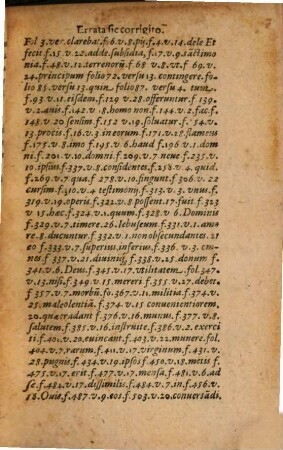 Errata sic corrigito.
Fol 3.ver. clareba: f.6.v.8.pij.f.4.v.14.dele Et
fecit f.15.v.22.adde.subsidia, f.17.v.9.sāctimo
nia.f.48.v.12.terrenorū.f.68 v.8.vt f.69.v.
24.principum folio 72.versu 13.contingere.fo-
lio 85.versu 13.quin.folio 87. versu 4. tum.
f.93 v.11. eisdem.f.129 v.28.offeruntur.f.139
v.2.auis.f.142.v.18.homo non.f.144 v.2.fac.f.
148.v.20 sensim f.152 v.19.soluatur f.154.v.
13.procis.f.16.v.3 in eorum.f.171.v.28.flameus
f.175.v.8.imo f.195 v.6.haud f.196 v.1.do-
ni. f.201 v.10.domni f.209.v.7 neue f.235.v.
10.ipsius.f.337.v.8.considentes.f.258 v.4. quid.
f.269.v.7 qua.f 278.v.10.singunt.f.306.v.21
cursim.f.310.v.4 testimonij.f.313.v.3 vnus.f.
319.v.19.operū.f.321.v.8 possent.17.fuit f.323
v 15 hec.f.324 v.1.quum.f.328 v.6.Dominus
f.329.v.7.timere.26.Iebuseum f.331.v.1.ama
re 8.ducuntur.f.332.v.1 non obsecundantes.21
eo f.333 v.7.superius.inferius.f.336.v. 3. em-
nes f.337 v.21.diuinitꝰ.f.338.v.25 donum f.
341.v.16.Deus.f.345 v.17.vtilitatem .fol.347
v.13.nisi.f.349.v.15.mereri f.355.v.17.debita.
f.357 v.7.morbū.fo.367 v.11.militia f.374.v.
25 maleolentiā.f.374.v.15 conuenientiorem.
20.quæ radant f.376.v.16.munus f.377.v.8.
salutem f.385.v.16. instruite f.386.v.2.exerci
ti.f.400.v.12.euincant.f.402.v.22.munere.fol.
404.v.7.rarum.f.411.v.17.virginum f.431.v.
28.pugnis.f.434.v.19.ipsos f.450.v.18 metus f.
475.v.17.erit f.477.v.17 mensa.f.481.v.6.ad
se.f.481.v.17.dissimilis.f.484.v.7.in.f.456.v.
18.Ouis f.487.v.9.eos f.503.v.20.conuersādi.